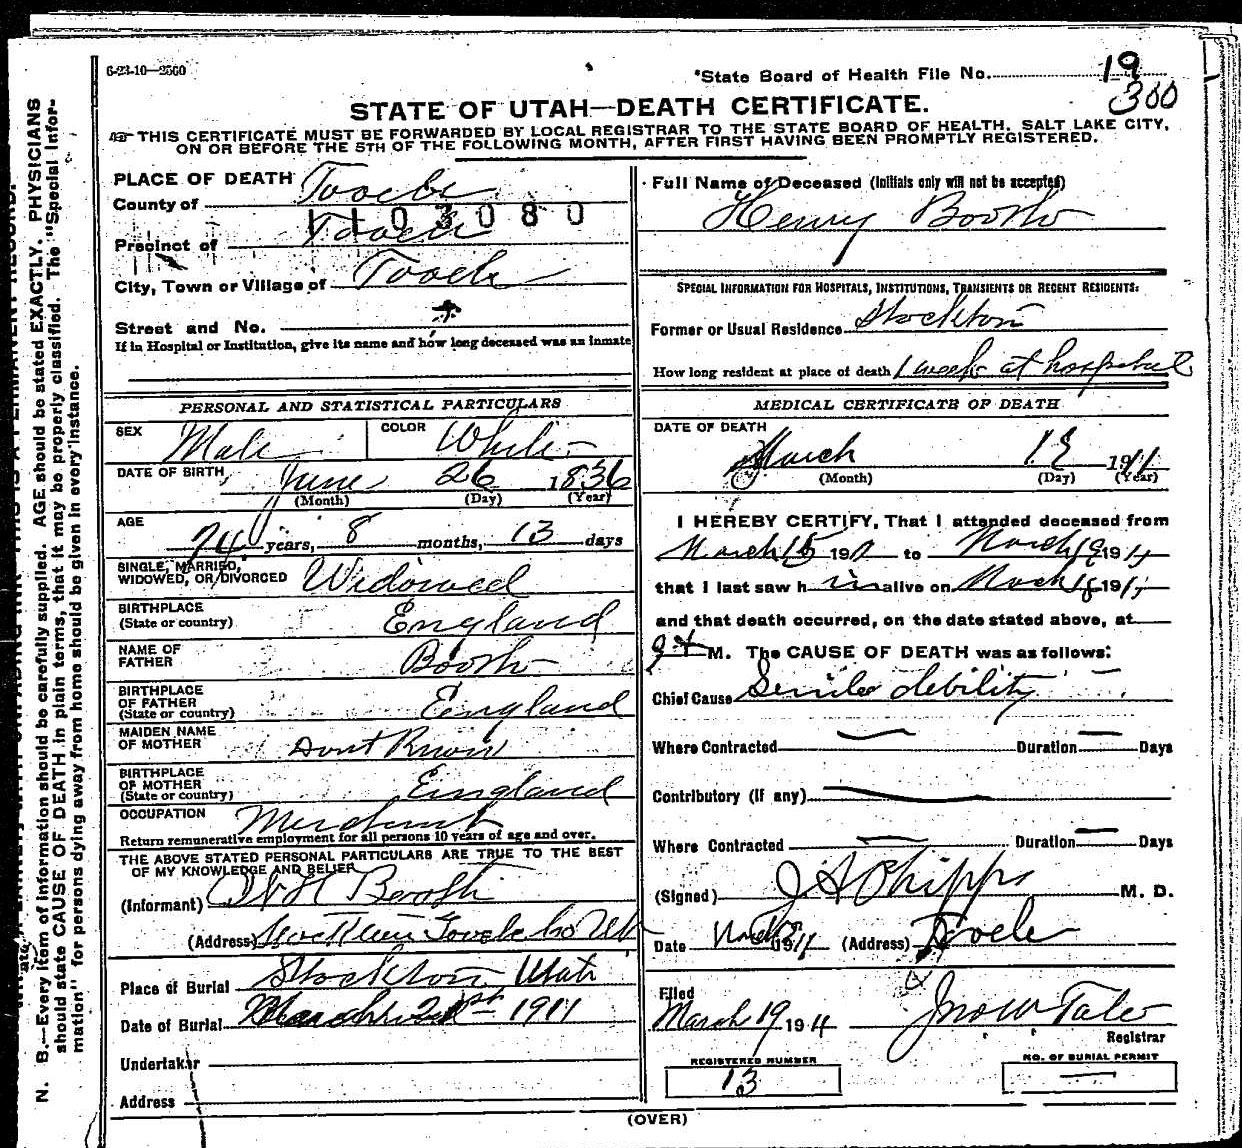 6-23-10—2500
State Board of Health File No. 19
300
STATE OF UTAH—DEATH CERTIFICATE.
THIS CERTIFICATE MUST BE FORWARDED BY LOCAL REGISTRAR TO THE STATE BOARD OF HEALTH, SALT LAKE CITY,
ON OR BEFORE THE 5TH OF THE FOLLOWING MONTH, AFTER FIRST HAVING BEEN PROMPTLY REGISTERED.
N. B.—Every item of information should be carefully supplied. AGE should be stated EXACTLY. PHYSICIANS
should state CAUSE OF DEATH in plain terms, that it may be properly classified. The "Special Infor-
mation" for persons dying away from home should be given in every instance.
PLACE OF DEATH
County of Tooele
1103080
Precinct of Tooele
City, Town or Village of Tooele
Street and No.
If in Hospital or Institution, give its name and how long deceased was an inmate
PERSONAL AND STATISTICAL PARTICULARS
SEX Male COLOR White
DATE OF BIRTH June 26 1836
(Month) (Day) (Year)
AGE
74 years, 8 months, 13 days
SINGLE, MARRIED,
WIDOWED, OR DIVORCED Widowed
BIRTHPLACE
(State or country) England
NAME OF
FATHER Booth
BIRTHPLACE
OF FATHER
(State or country) England
MAIDEN NAME
OF MOTHER Dont Know
BIRTHPLACE
OF MOTHER
(State or country) England
OCCUPATION Merchant
Return remunerative employment for all persons 10 years of age and over.
THE ABOVE STATED PERSONAL PARTICULARS ARE TRUE TO THE BEST
OF MY KNOWLEDGE AND BELIEF
(Informant) Booth
(Address) Stockton Tooele Co Ut
Place of Burial Stockton Utah
Date of Burial March 21st 1911
Undertaker
Address
Full Name of Deceased (Initials only will not be accepted)
Henry Booth
SPECIAL INFORMATION FOR HOSPITALS, INSTITUTIONS, TRANSIENTS OR RECENT RESIDENTS:
Former or Usual Residence Stockton
How long resident at place of death 1 week at hospital
MEDICAL CERTIFICATE OF DEATH
DATE OF DEATH
March 1911
(Month) (Day) (Year)
I HEREBY CERTIFY, That I attended deceased from
March 15 191 to March 19 1911
that I last saw him alive on March 18 191
and that death occurred, on the date stated above, at
9 M. The CAUSE OF DEATH was as follows:
Chief Cause Senile debility
Where Contracted Duration Days
Contributory (if any)
Where Contracted Duration Days
(Signed) J A Phipps M. D.
Date 1911 (Address) Tooele
Filed
March 19 1911 Jno W Tate
Registrar
REGISTERED NUMBER
13
NO. OF BURIAL PERMIT
(OVER)